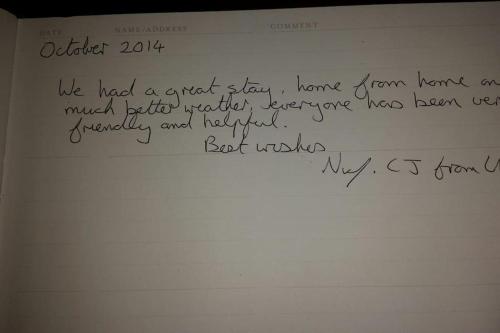 DATE NAME/ADDRESS COMMENT
October 2014
We had a great stay, home from home an
much better weather, everyone has been ver
friendly and helpful.
Best wishes
CJ from U